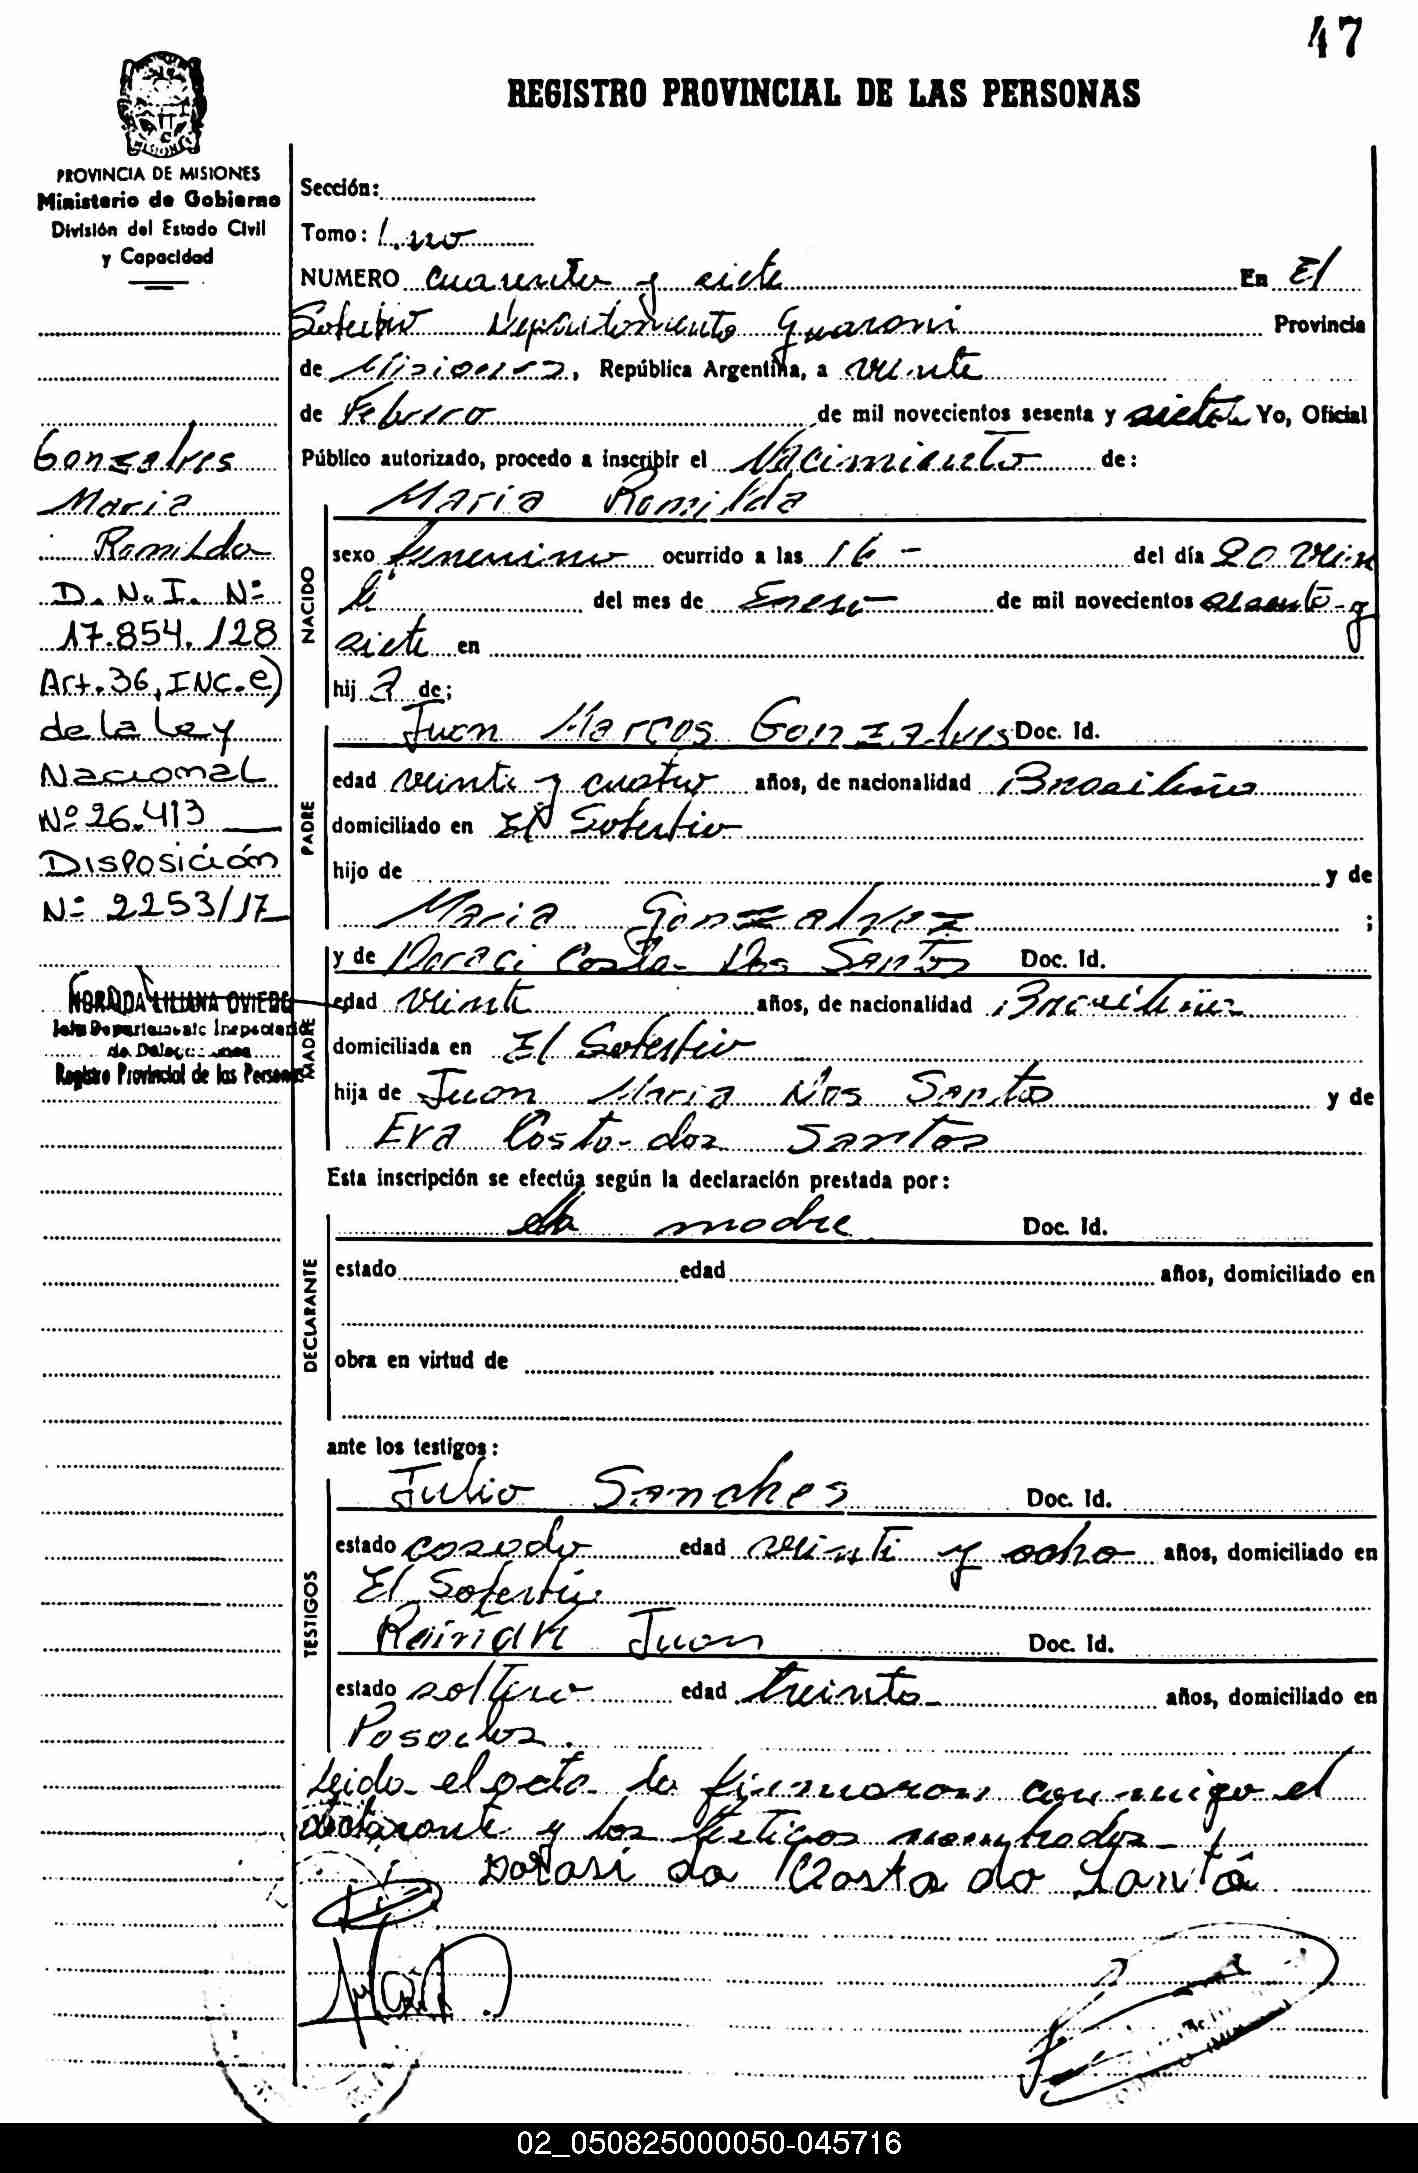 47
REGISTRO PROVINCIAL DE LAS PERSONAS
PROVINCIA DE MISIONES
Ministerio de Gobierno
División del Estado Civil
y Capacidad
Gonzalves
Maria
Romilda
D.N.I. Nº
17.854.128
Art. 36, INC. e)
de la Ley
Nacional
Nº 26.413
Disposición
Nº 2253/17
NORAIDA LILIANA OVIEDO
Jefa Departamento Inspectoria
de Delegaciones
Registro Provincial de las Personas
Sección:
Tomo: Uno
NUMERO cuarenta y siete En El
Soberbio Departamento Guarani Provincia
de Misiones, República Argentina, a veinte
de Febrero de mil novecientos sesenta y siete Yo, Oficial
Público autorizado, procedo a inscribir el Nacimiento de:
NACIDO
Maria Romilda
sexo femenino ocurrido a las 16 - del día 20 vein
te del mes de Enero de mil novecientos sesenta y
siete en
hij a de;
PADRE
Juan Marcos Gonzalves Doc. Id.
edad veinte y cuatro años, de nacionalidad Brasileña
domiciliado en El Soberbio
hijo de y de
Maria Gonzalvez ;
MADRE
y de Doraci Costa Dos Santos Doc. Id.
edad veinte años, de nacionalidad Brasileña
domiciliada en El Soberbio
hija de Juan Maria Dos Santos y de
Eva Costa dos Santos
Esta inscripción se efectúa según la declaración prestada por:
DECLARANTE
la madre Doc. Id.
estado edad años, domiciliado en
obra en virtud de
ante los testigos:
TESTIGOS
Julio Sanches Doc. Id.
estado casado edad veinti y ocho años, domiciliado en
El Soberbio
Juan Doc. Id.
estado soltero edad treinta años, domiciliado en
Posadas.
Leido el acta la firmaron conmigo el
declarante y los testigos nombrados
Dorasi da Costa do Santo
02_050825000050-045716